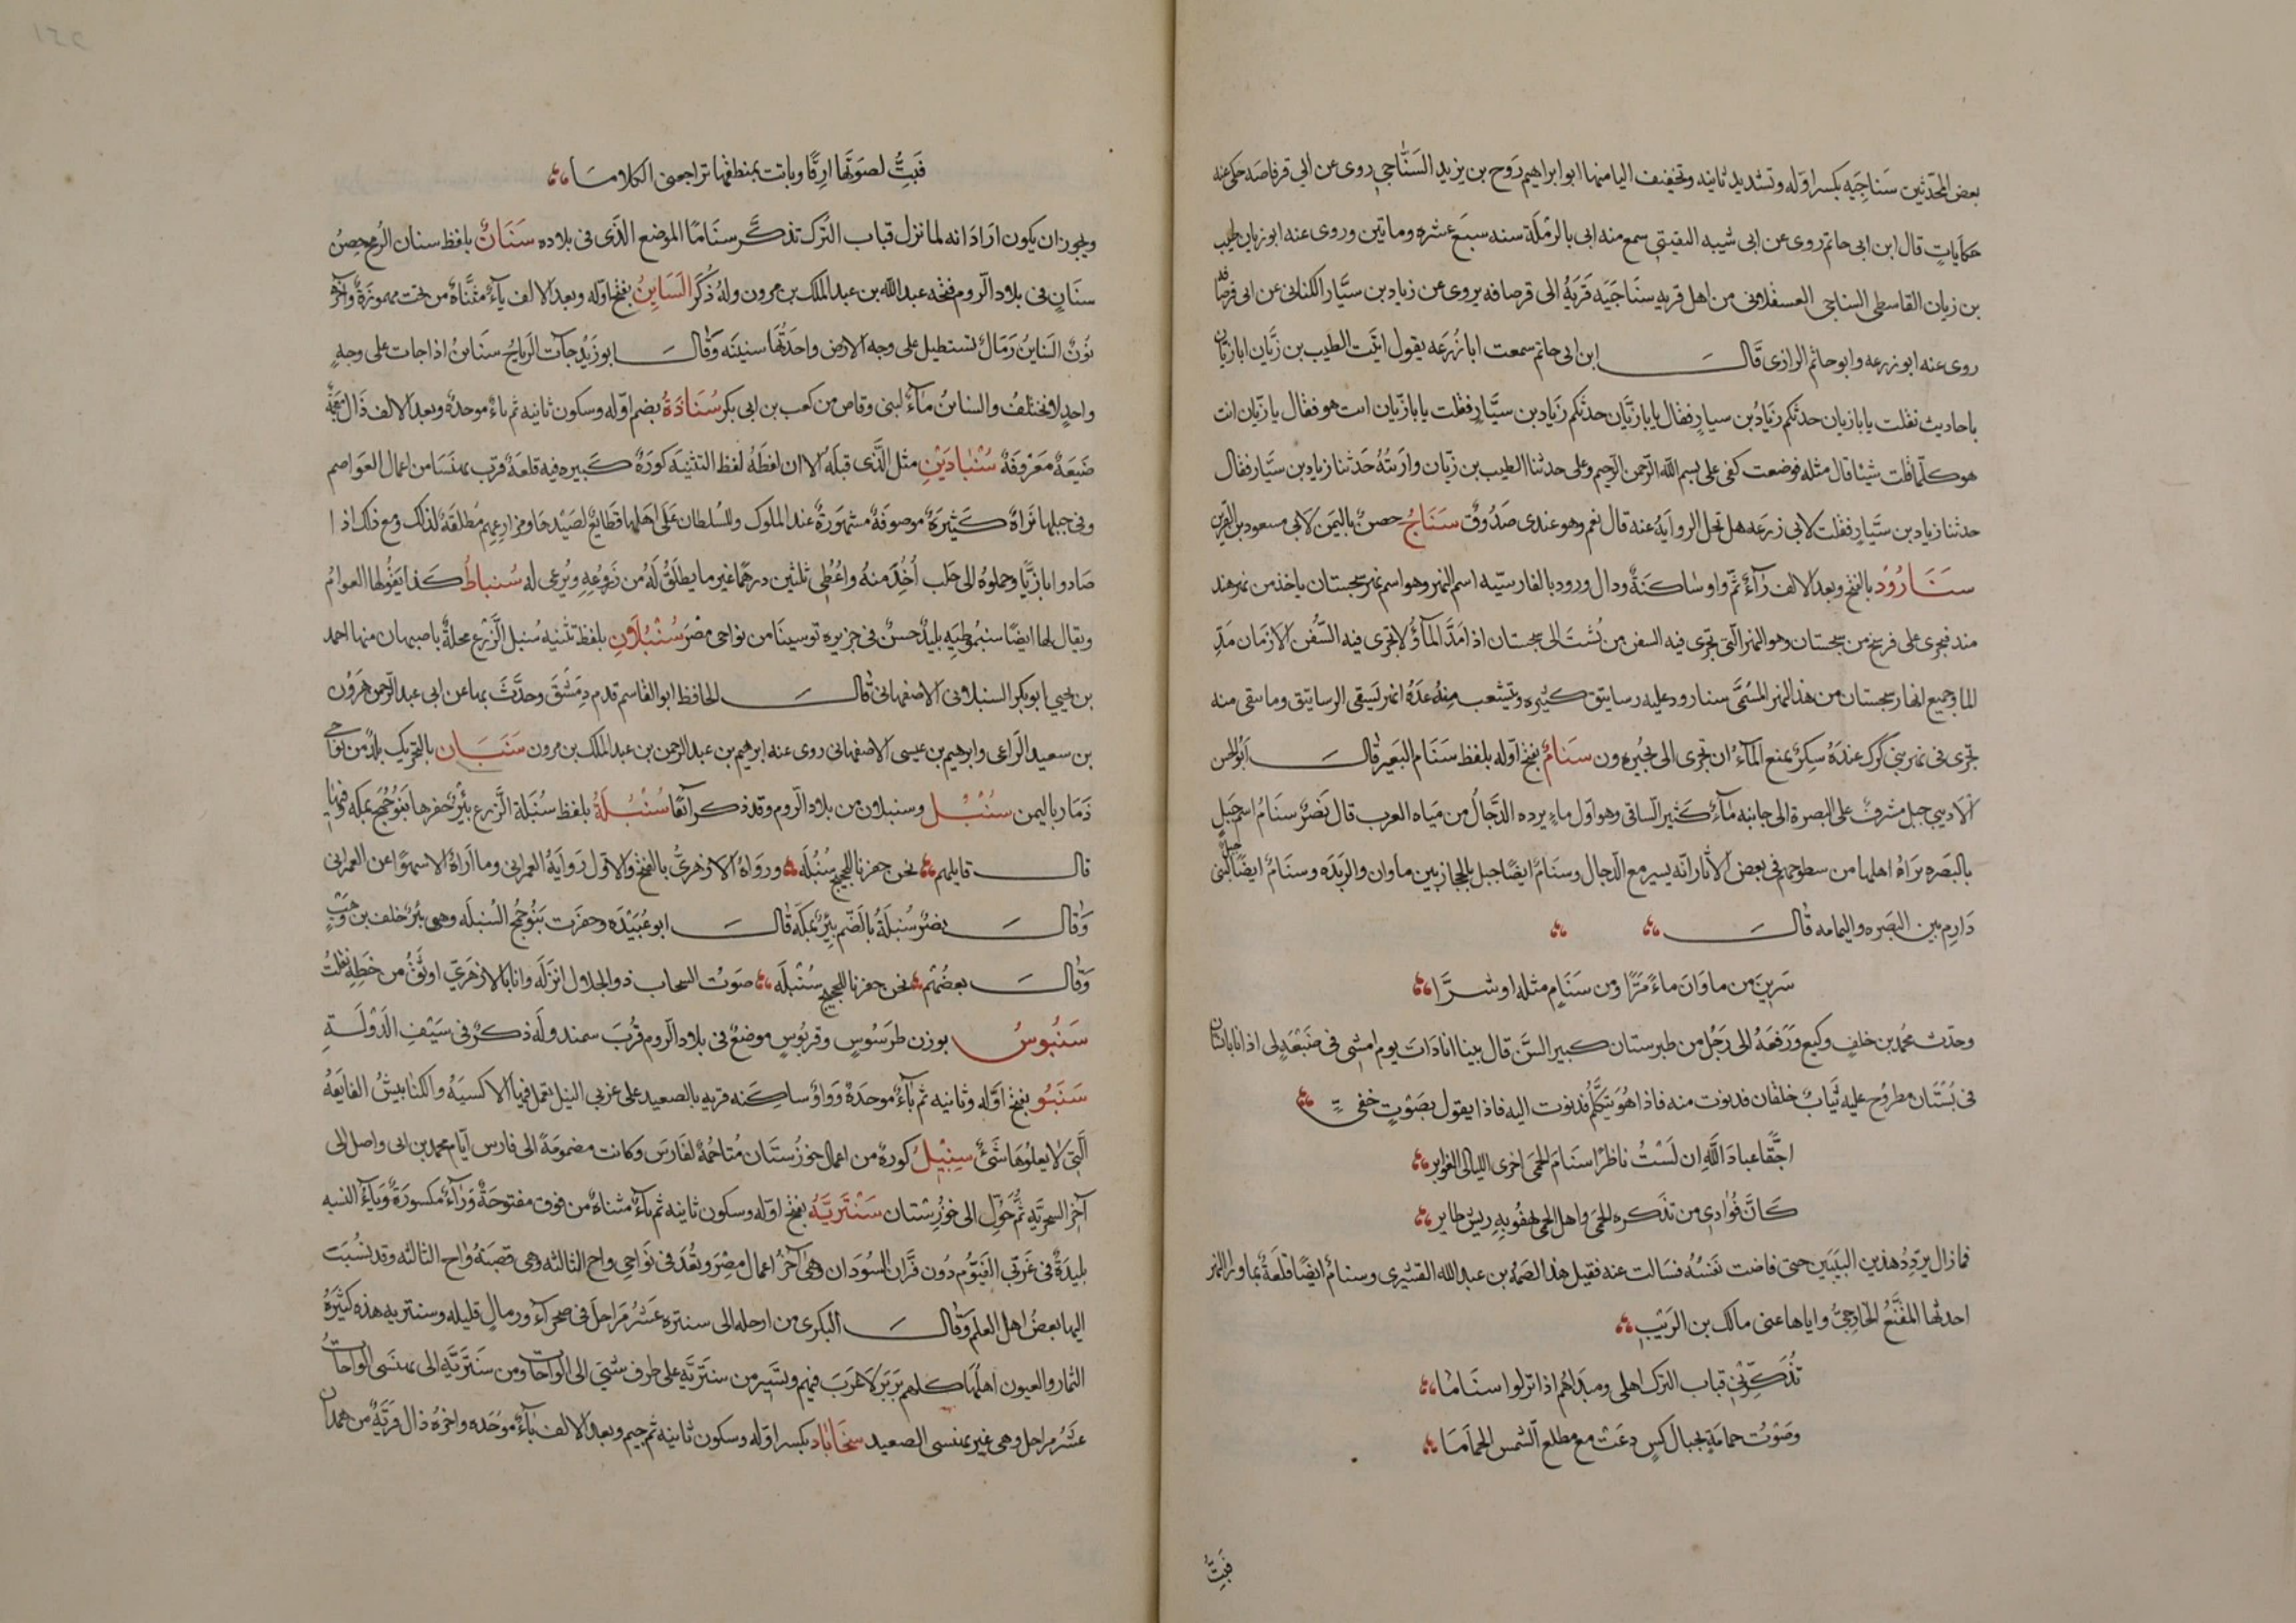 بعض المحدثين سناجيه بكسر اوله وتشديد ثانيه وتخفيف اليا منها ابو ابراهيم روح بن يزيد السناجي روى عن ابي قرفاصه حكى عنه
حكايات قال ابن ابى حاتم روى عن ابى شيبه النفيتى سمع منه ابى بالرملة سنه سبع عشره وماتين وروى عنه ابو زيان طيب
بن زيان القاسطى السناجى العسقلانى من اهل قريه سناجيه قرية الى قرصافه يروى عن زياد بن سيار الكنانى عن ابى قرصافه
روى عنه ابو زرعه وابو حاتم الرازى قال ابن ابى حاتم سمعت ابا زرعه يقول اتيت الطيب بن زيان ابا زيان
باحاديث فقلت يا با زيان حدثكم زياد بن سيار فقال يا با زيان حدثكم زياد بن سيار فقلت يا با زيان انت هو فقال يا زيان انت
هو كلما قلت شيئا قال مثله فوضعت كفى على بسم الله الرحمن الرحيم وعلى حدثنا الطيب بن زيان واريته حدثنا زياد بن سيار فقال
حدثنا زياد بن سيار فقلت لابى زرعه هل تحل الرواية عنه قال نعم وهو عندى صدوق سناج حصن باليمن لابى مسعود بن القرين
سنارود بالفتح وبعد الالف راء ثم واو ساكنة ودال ورود بالفارسيه اسم النهر وهو اسم نهر سجستان ياخذ من نهر هند
مند فيجرى على فرسخ من سجستان وهو النهر التى تجرى فيه السفن من بست الى سجستان اذا مد الماء ولا تجرى فيه السفن الا زمان مد
الما وجميع انهار سجستان من هذا النهر المسمى سنارود عليه رساتيق كثيره وتيشعب منه عدة انهر تسقى الرساتيق وما سقى منه
تجرى فى نهر بنى كزك عنده سكر يمنع الماء ان تجرى الى بحيره ون سنام بفتح اوله بلفظ سنام البعير قال ابو الحسن
الاديبى جبل مشرف على البصرة الى جانبه ماء كثير الساقى وهو اول ماء يرده الدجال من مياه العرب قال نصر سنام اسم جبل
بالبصره يراه اهلها من سطوحهم فى بعض الآثار انه يسير مع الدجال وسنام ايضا جبل بالحجاز بين ماوان والربذه وسنام ايضا جبل لبنى
دارم بين البصره واليمامه قال
شربن من ماوان ماء مرا ومن سنام مثله او شرا
وحدث محمد بن خلف وكيع ورفعه الى رجل من طبرستان كبير السن قال بينا انا ذات يوم امشى فى ضيعة لى اذ انا بانسان
فى بستان مطروح عليه ثياب خلقان فدنوت منه فاذا هو يتكلم فدنوت اليه فاذا يقول بصوت خفى
احقا عباد الله ان لست ناظرا سنام الحمى اخرى الليالى الغوابر
كان فوادى من تذكره الحمى واهل الحمى يهفو به ريش طاير
فما زال يردد هذين البيتين حتى فاضت نفسه فسالت عنه فقيل هذا الصمة بن عبد الله القشيرى وسنام ايضا قلعة بما ورا النهر
احدثها المقنع الخارجى واياها عنى مالك بن الريب
تذكرنى قباب الترك اهلى ومبداهم اذا نزلوا سناما
وصوت حمامة بجبال كس دعت مع مطلع الشمس الحماما
فبت
فبت لصوتها ارقا وباتت بمنطقها تراجعنى الكلاما
ويجوز ان يكون اراد انه لما نزل قباب الترك تذكر سناما الموضع الذى فى بلاده سنان بلفظ سنان الرمح حصن
سنان فى بلاد الروم فتحه عبد الله بن عبد الملك بن مرون وله ذكر السناين بفتح اوله وبعد الالف ياء مثناة من تحت مهموزة وآخره
نون السناين رمال تستطيل على وجه الارض واحدتها سنينه وقال ابو زيد جآت الرياح سناين اذا جات على وجه
واحد لا تختلف والسناين ماء لبنى وقاص من كعب بن ابى بكر سنباذة بضم اوله وسكون ثانيه ثم باء موحده وبعد الالف ذال معجمة
ضيعة معروفة سنباذين مثل الذى قبله الا ان لفظه لفظ التثنيه كورة كبيره فيه قلعة قرب بهنسا من اعمال العواصم
وفى جبلها بزاة كثيرة موصوفة مشهورة عند الملوك وللسلطان على اهلها قطايع لصيدها ومزارعهم مطلقة لذلك ومع ذلك اذا
صادوا بازيا وحملوه الى حلب اخذ منه واعطى ثلثين درهما غير ما يطلق له من زروعه ويرعى له سنباط كذا يقولها العوام
ويقال لها ايضا سنبموطيه بليد حسن فى جزيره قوسينا من نواحى مصر سنبلان بلفظ تثنيه سنبل الزرع محلة باصبهان منها احمد
بن يحيى ابو بكر السنبلانى الاصفهانى قال الحافظ ابو القاسم قدم دمشق وحدث بها عن ابى عبد الرحمن هرون
بن سعيد الراعى وابرهيم بن عيسى الاصفهانى روى عنه ابرهيم بن عبد الرحمن بن عبد الملك بن مرون سنبان بالتحريك بلد من نواحى
ذمار باليمن سنبل وسنبلان من بلاد الروم وقد ذكر آنفا سنبلة بلفظ سنبلة الزرع بئر حفرها بنو جمح بمكه فيها
قال قايلهم نحن حفرنا للحجيج سنبله ورواه الازهرى بالفتح والاول رواية العمرانى وما اراه الا سهوا عن العمرانى
وقال نصر سنبلة بالضم بئر بمكة قال ابو عبيده وحفرت بنو جمح السنبله وهى بئر خلف بن وهب
وقال بعضهم نحن حفرنا للحجيج سنبله صوت السحاب ذو الجلال انزله وانا بالازهرى اوثق من خطه نقلت
سنبوس بوزن طرسوس وقربوس موضع فى بلاد الروم قرب سمندو له ذكر فى سيف الدولة
سنبو بفتح اوله وثانيه ثم باء موحدة وواو ساكنه قريه بالصعيد على غربى النيل تعمل فيها الاكسيه والكنابيش الفايقة
التى لا يعلوها شئ سنبيل كورة من اعمال خوزستان متاخمة لفارس وكانت مضمومة الى فارس ايام محمد بن ابى واصل الى
آخر السجزية ثم حول الى خوزستان سنترية بفتح اوله وسكون ثانيه ثم تاء مثناة من فوق مفتوحة وراء مكسورة وياء النسبه
بليدة فى غربى الفيوم دون فزان السودان وهى آخر اعمال مصر وتعد فى نواحى واح الثالثه وهى قصبة واح الثالثه وقد نسبت
اليها بعض اهل العلم وقال البكرى من اوجله الى سنتره عشر مراحل فى صحرآء ورمال قليله وسنتريه هذه كثيرة
الثمار والعيون اهلها كلهم بربر لا عرب فيهم ويسير من سنترية على طرق شتى الى الواحات ومن سنترية الى بهنسى الواحات
عشر مراحل وهى غير بهنسى الصعيد سنجاباذ بكسر اوله وسكون ثانيه ثم جيم وبعد الالف باء موحده واخره ذال قرية من همدان